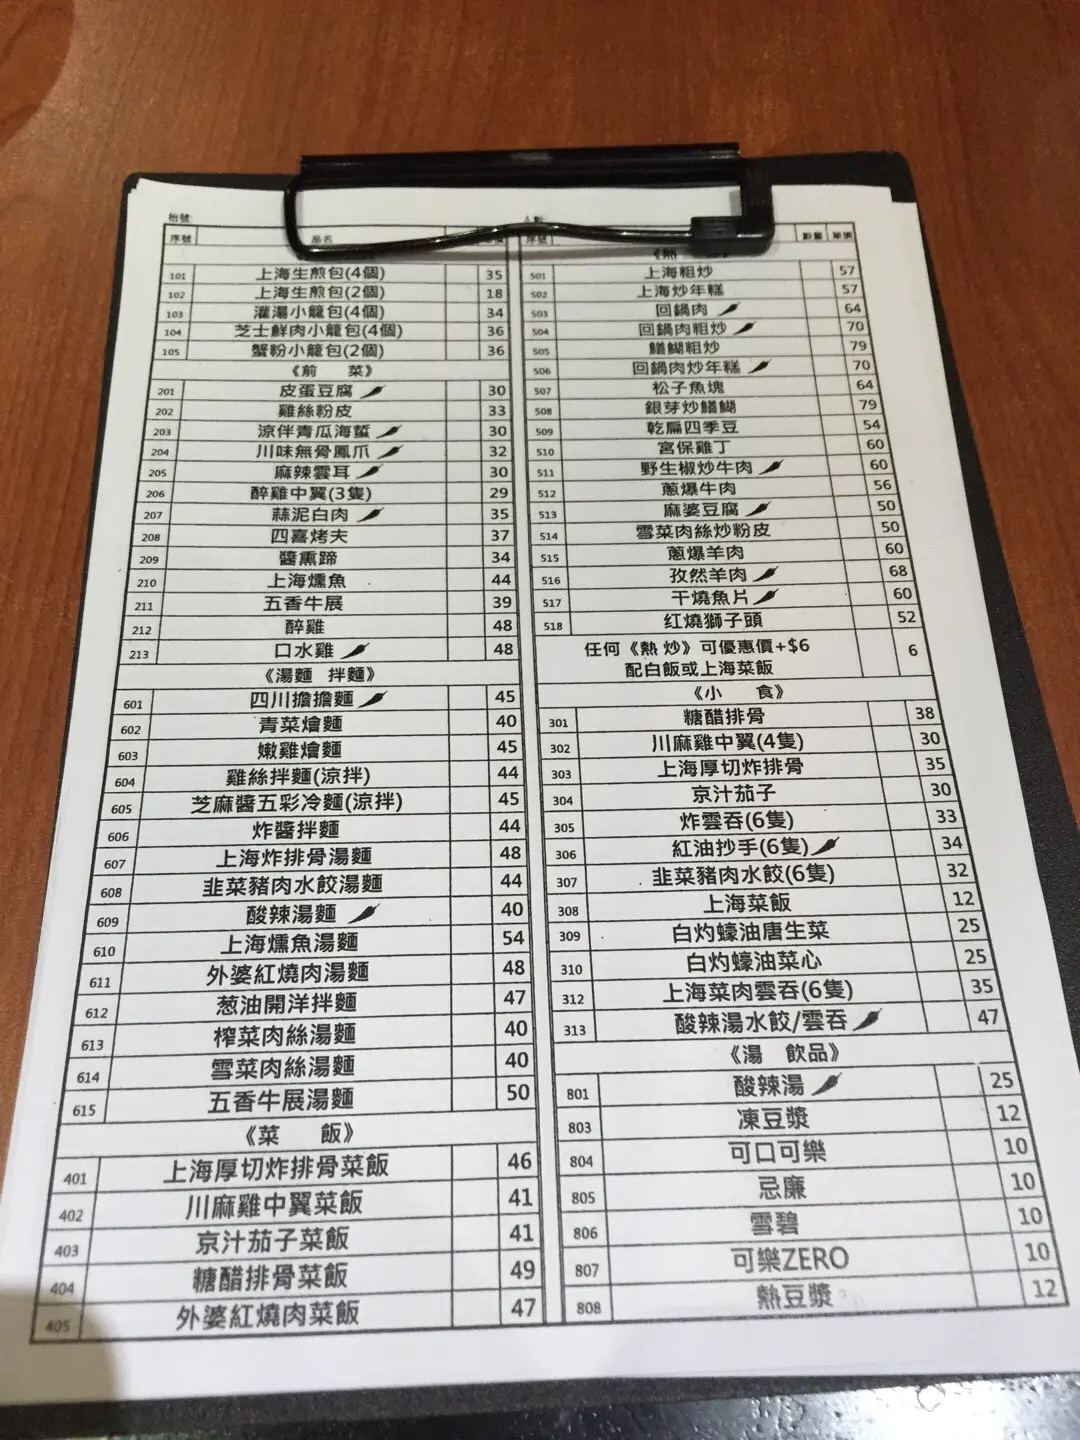 枱號
序號 品名
101 上海生煎包(4個) 35
102 上海生煎包(2個) 18
103 灌湯小籠包(4個) 34
104 芝士鮮肉小籠包(4個) 36
105 蟹粉小籠包(2個) 36
《前 菜》
201 皮蛋豆腐 30
202 雞絲粉皮 33
203 涼伴青瓜海蜇 30
204 川味無骨鳳爪 32
205 麻辣雲耳 30
206 醉雞中翼(3隻) 29
207 蒜泥白肉 35
208 四喜烤夫 37
209 醬熏蹄 34
210 上海燻魚 44
211 五香牛展 39
212 醉雞 48
213 口水雞 48
《湯麵 拌麵》
601 四川擔擔麵 45
602 青菜燴麵 40
603 嫩雞燴麵 45
604 雞絲拌麵(涼拌) 44
605 芝麻醬五彩冷麵(涼拌) 45
606 炸醬拌麵 44
607 上海炸排骨湯麵 48
608 韭菜豬肉水餃湯麵 44
609 酸辣湯麵 40
610 上海燻魚湯麵 54
611 外婆紅燒肉湯麵 48
612 葱油開洋拌麵 47
613 榨菜肉絲湯麵 40
614 雪菜肉絲湯麵 40
615 五香牛展湯麵 50
《菜 飯》
401 上海厚切炸排骨菜飯 46
402 川麻雞中翼菜飯 41
403 京汁茄子菜飯 41
404 糖醋排骨菜飯 49
405 外婆紅燒肉菜飯 47
人數
序號 數量 單價
《熱
501 上海粗炒 57
502 上海炒年糕 57
503 回鍋肉 64
504 回鍋肉粗炒 70
505 鱔糊粗炒 79
506 回鍋肉炒年糕 70
507 松子魚塊 64
508 銀芽炒鱔糊 79
509 乾扁四季豆 54
510 宮保雞丁 60
511 野生椒炒牛肉 60
512 蔥爆牛肉 56
513 麻婆豆腐 50
514 雪菜肉絲炒粉皮 50
515 蔥爆羊肉 60
516 孜然羊肉 68
517 干燒魚片 60
518 红燒獅子頭 52
任何《熱 炒》可優惠價+$6
配白飯或上海菜飯 6
《小 食》
301 糖醋排骨 38
302 川麻雞中翼(4隻) 30
303 上海厚切炸排骨 35
304 京汁茄子 30
305 炸雲吞(6隻) 33
306 紅油抄手(6隻) 34
307 韭菜豬肉水餃(6隻) 32
308 上海菜飯 12
309 白灼蠔油唐生菜 25
310 白灼蠔油菜心 25
312 上海菜肉雲吞(6隻) 35
313 酸辣湯水餃/雲吞 47
《湯 飲品》
801 酸辣湯 25
803 凍豆漿 12
804 可口可樂 10
805 忌廉 10
806 雪碧 10
807 可樂ZERO 10
808 熱豆漿 12